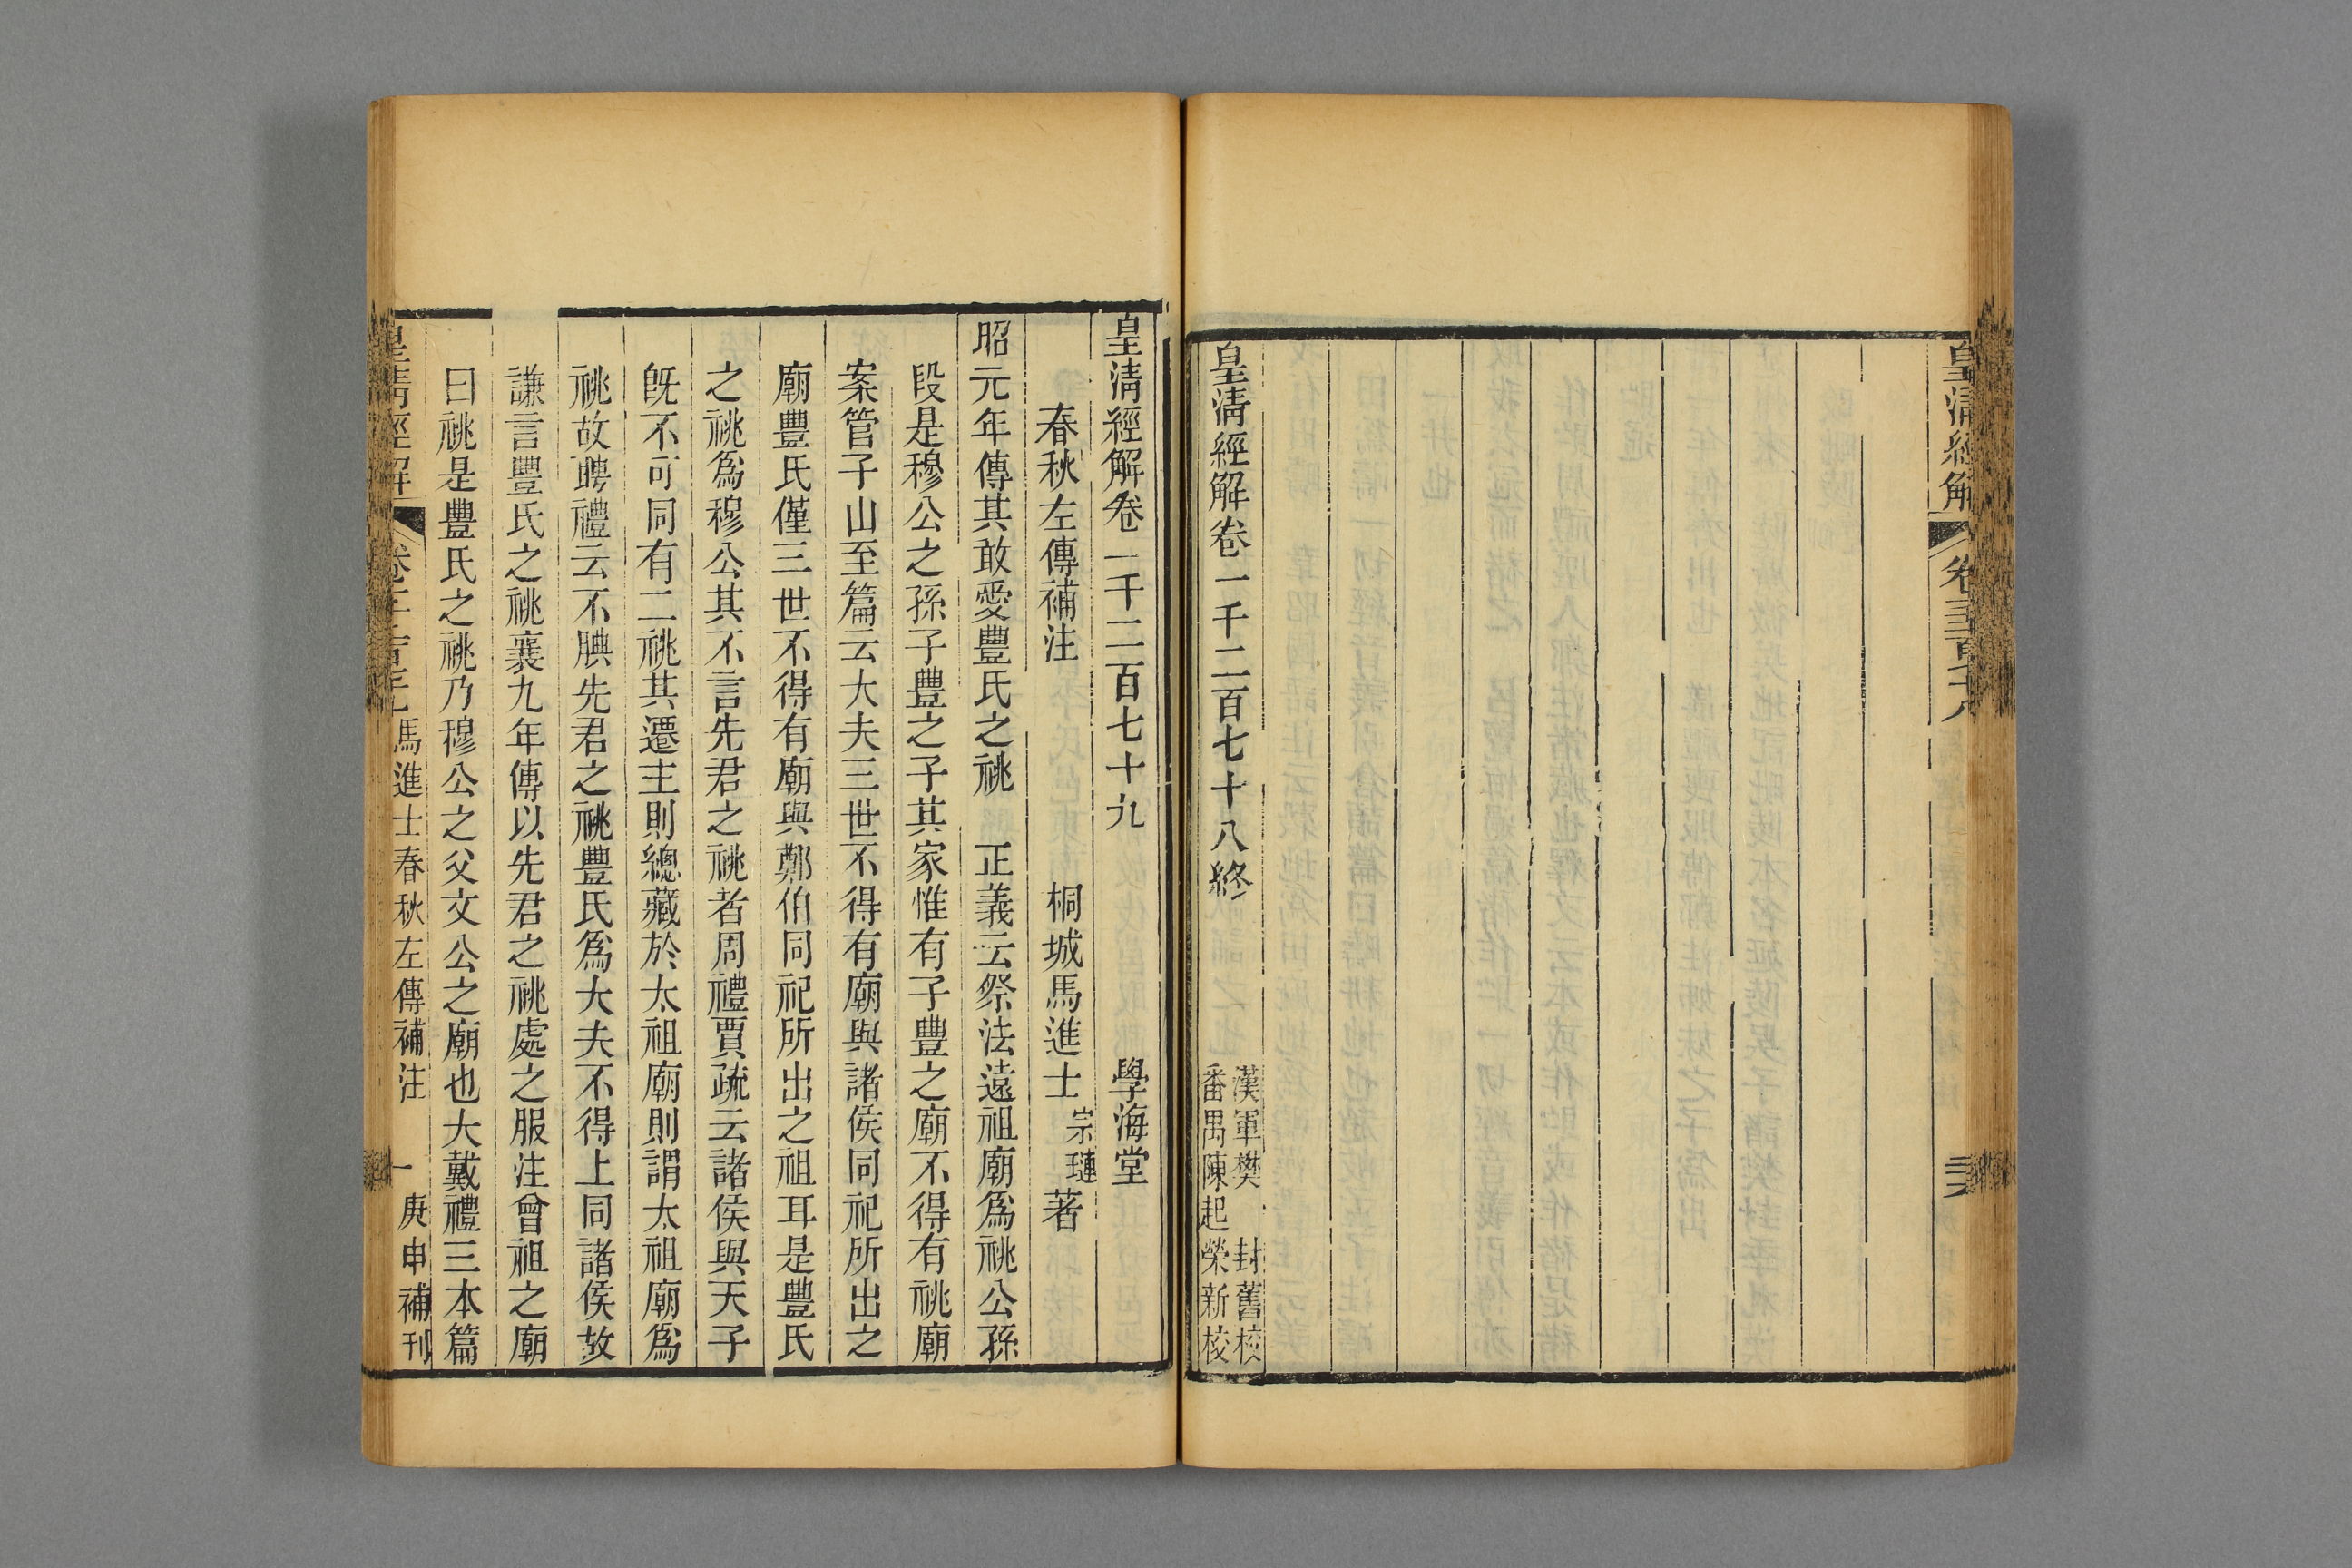 皇清經解
皇清經解卷一千二百七十八終
漢軍樊封舊校
番禺陳起榮新校
皇清經解卷一千二百七十九
學海堂
春秋左傳補注
桐城馬進士宗璉著
昭元年傳其敢愛豐氏之祧 正義云祭法遠祖廟爲祧公孫
段是穆公之孫子豐之子其家惟有子豐之廟不得有祧廟
案管子山至篇云大夫三世不得有廟與諸侯同祀所出之
廟豐氏僅三世不得有廟與鄭伯同祀所出之祖耳是豐氏
之祧爲穆公其不言先君之祧者周禮賈疏云諸侯與天子
旣不可同有二祧其遷主則總藏於太祖廟則謂太祖廟爲
祧故聘禮云不腆先君之祧豐氏爲大夫不得上同諸侯故
謙言豐氏之祧襄九年傳以先君之祧處之服注曾祖之廟
曰祧是豐氏之祧乃穆公之父文公之廟也大戴禮三本篇
皇清經解
馬進士春秋左傳補注
一
庚申補刊